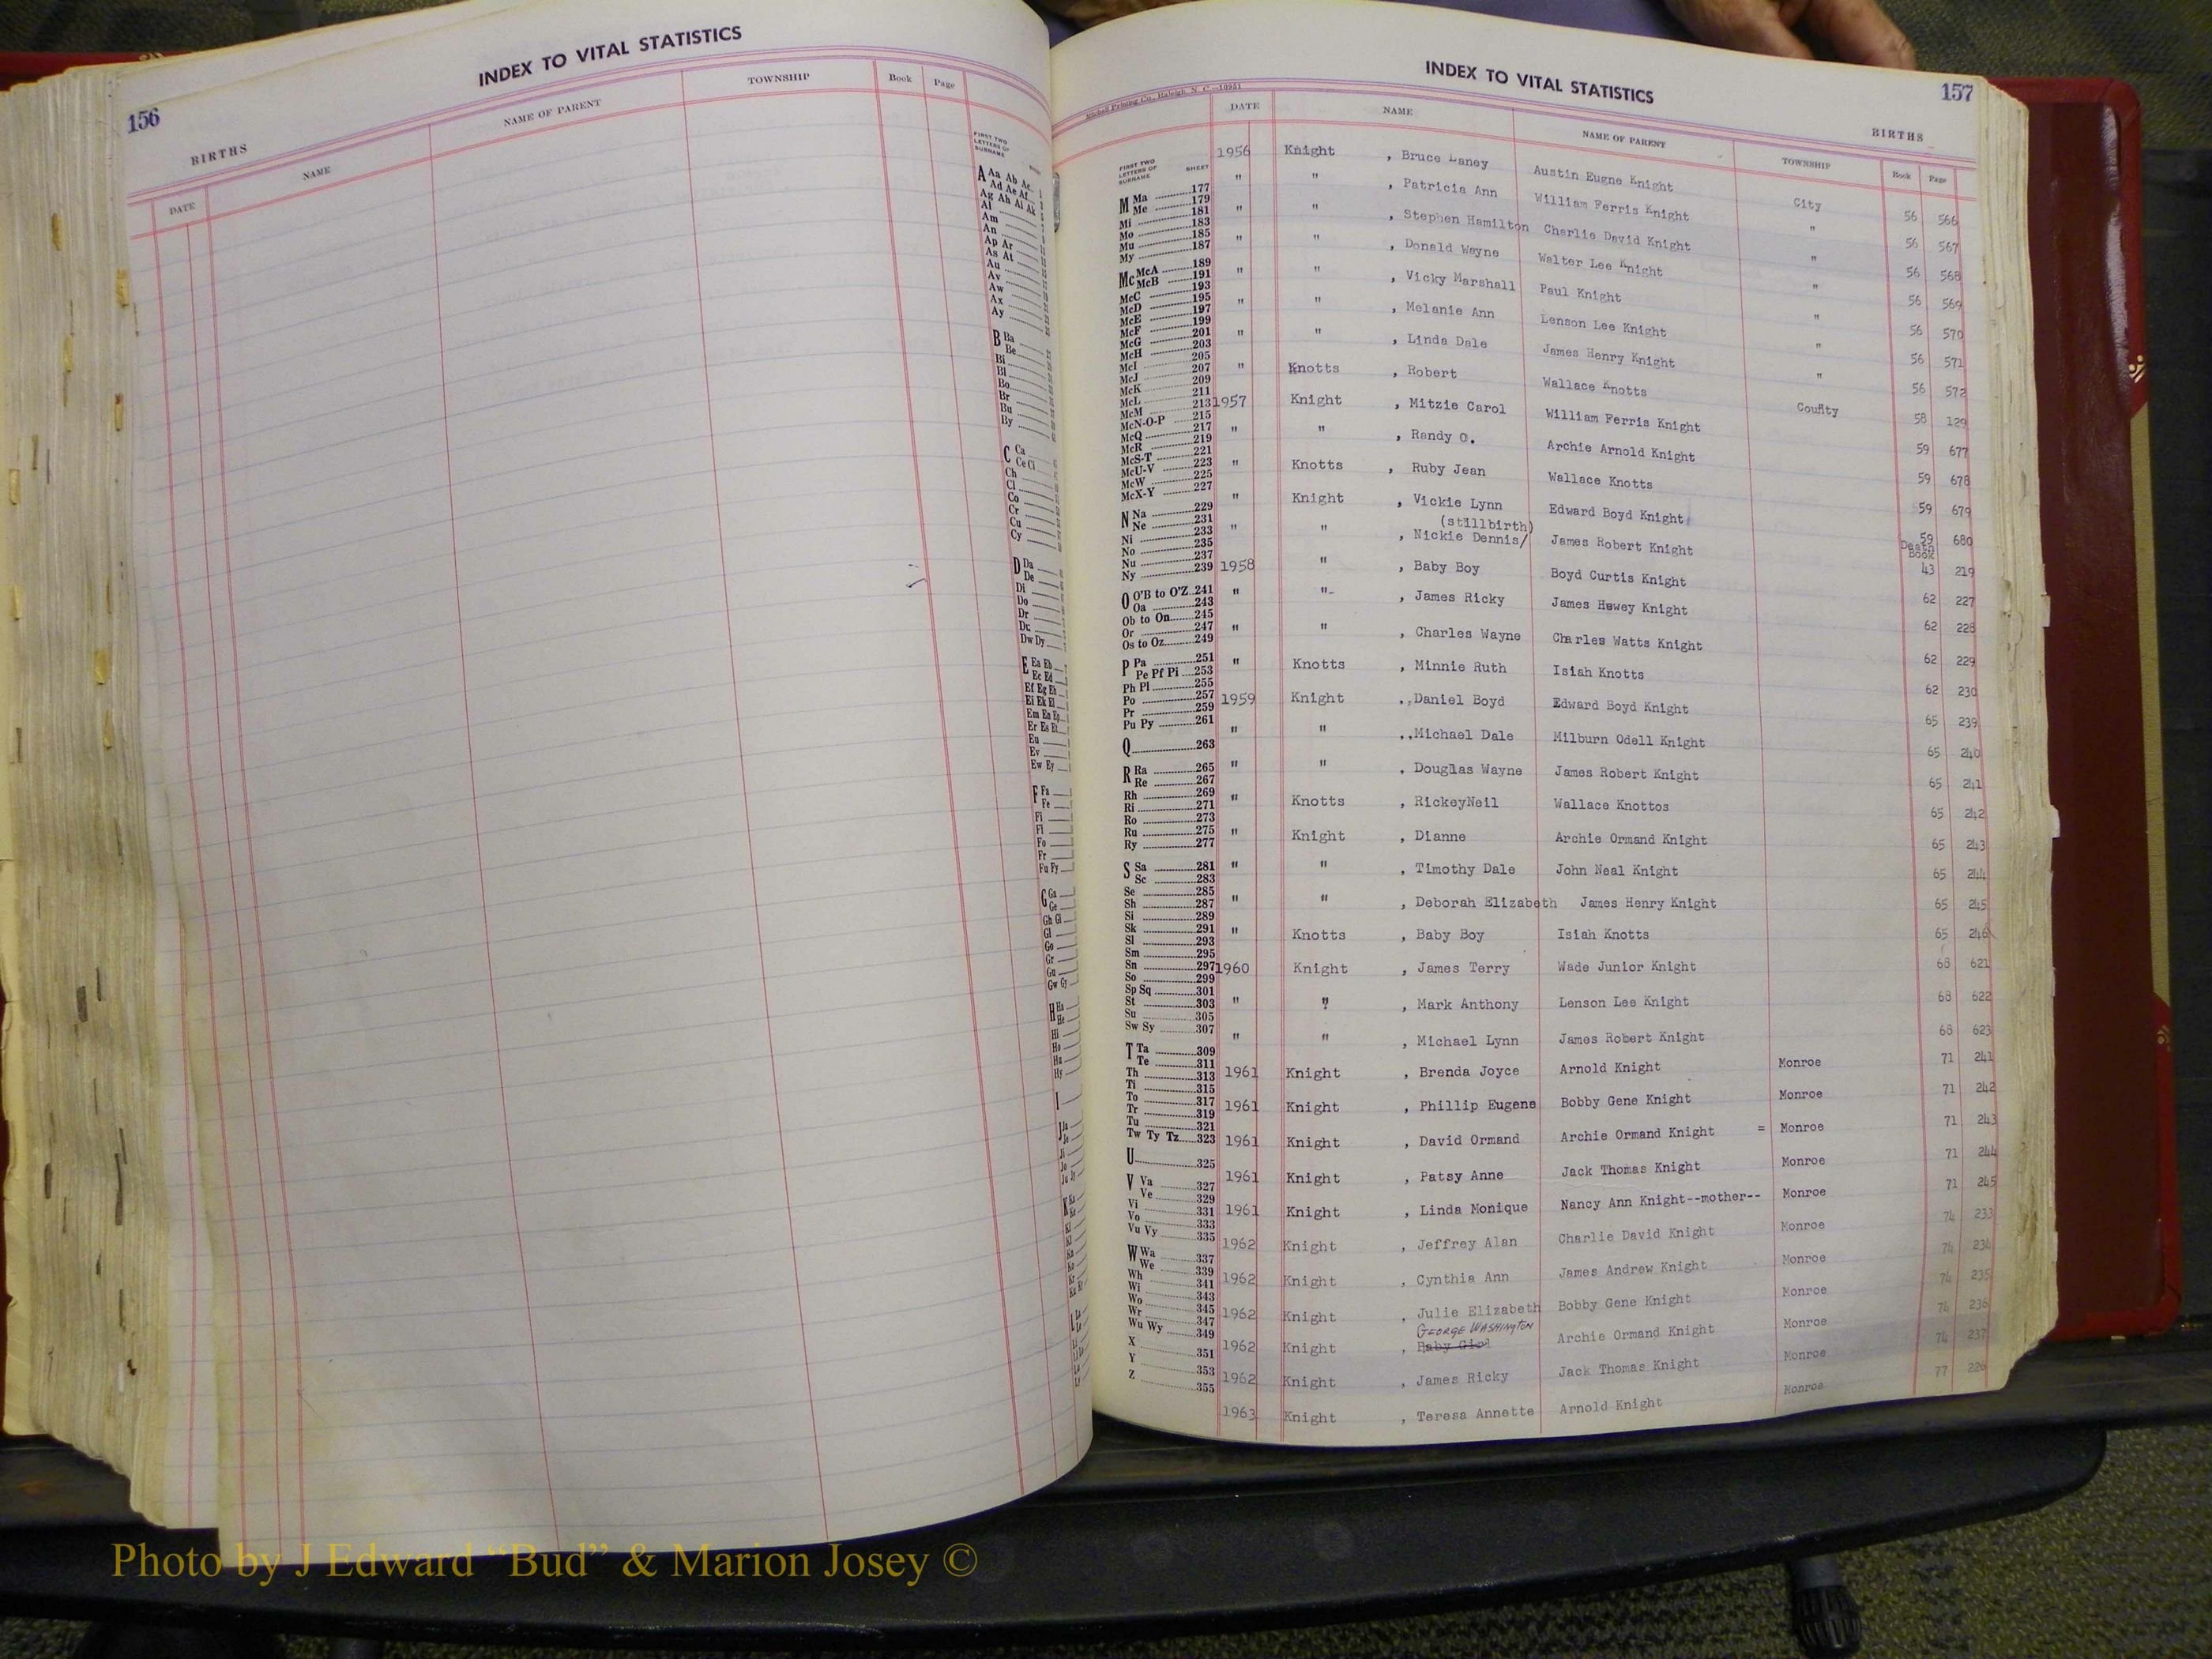 INDEX TO VITAL STATISTICS
156
BIRTHS
DATE NAME NAME OF PARENT TOWNSHIP Book Page
FIRST TWO
LETTERS OF
SURNAME
A Aa Ab Ac
Ad Ae Af
Ag Ah Ai Ak
Al
Am
An
Ap Ar
As At
Au
Av
Aw
Ax
Ay
B Ba
Be
Bi
Bl
Bo
Br
Bu
By
C Ca
Ce Ci
Ch
Cl
Co
Cr
Cu
Cy
D Da
De
Di
Do
Dr
Du
Dw Dy
E Ea Eb
Ec Ed
Ef Eg Eh
Ei Ek El
Em En Ep
Er Es Et
Eu
Ev
Ew Ey
F Fa
Fe
Fi
Fl
Fo
Fr
Fu Fy
G Ga
Ge
Gh Gi
Gl
Go
Gr
Gu
Gw Gy
H Ha
He
Hi
Ho
Hu
Hy
I
INDEX TO VITAL STATISTICS
157
Mitchell Printing Co., Raleigh, N. C.—10951
BIRTHS
DATE NAME NAME OF PARENT TOWNSHIP Book Page
FIRST TWO
LETTERS OF
SURNAME
SHEET
M Ma 177
Me 179
Mi 181
Mo 183
Mu 185
My 187
Mc McA 189
McB 191
McC 193
McD 195
McE 197
McF 199
McG 201
McH 203
McI 205
McJ 207
McK 209
McL 211
McM 213
McN-O-P 215
McQ 217
McR 219
McS-T 221
McU-V 223
McW 225
McX-Y 227
N Na 229
Ne 231
Ni 233
No 235
Nu 237
Ny 239
O O'B to O'Z 241
Oa 243
Ob to On 245
Or 247
Os to Oz 249
P Pa 251
Pe Pf Pi 253
Ph Pl 255
Po 257
Pr 259
Pu Py 261
Q 263
R Ra 265
Re 267
Rh 269
Ri 271
Ro 273
Ru 275
Ry 277
S Sa 281
Sc 283
Se 285
Sh 287
Si 289
Sk 291
Sl 293
Sm 295
Sn 297
So 299
Sp Sq 301
St 303
Su 305
Sw Sy 307
T Ta 309
Te 311
Th 313
Ti 315
To 317
Tr 319
Tu 321
Tw Ty Tz 323
U 325
V Va 327
Ve 329
Vi 331
Vo 333
Vu Vy 335
W Wa 337
We 339
Wh 341
Wi 343
Wo 345
Wr 347
Wu Wy 349
X 351
Y 353
Z 355
1956 Knight , Bruce Laney Austin Eugne Knight City 56 566
" " , Patricia Ann William Ferris Knight " 56 567
" " , Stephen Hamilton Charlie David Knight " 56 568
" " , Donald Wayne Walter Lee Knight " 56 569
" " , Vicky Marshall Paul Knight " 56 570
" " , Melanie Ann Lenson Lee Knight " 56 571
" " , Linda Dale James Henry Knight " 56 572
" Knotts , Robert Wallace Knotts County 58 129
1957 Knight , Mitzie Carol William Ferris Knight 59 677
" " , Randy O. Archie Arnold Knight 59 678
" Knotts , Ruby Jean Wallace Knotts 59 679
" Knight , Vickie Lynn Edward Boyd Knight 59 680
(stillbirth) Death Book
" " , Nickie Dennis/ James Robert Knight 43 219
1958 " , Baby Boy Boyd Curtis Knight 62 227
" " , James Ricky James Hewey Knight 62 228
" " , Charles Wayne Charles Watts Knight 62 229
" Knotts , Minnie Ruth Isiah Knotts 62 230
1959 Knight , Daniel Boyd Edward Boyd Knight 65 239
" " , Michael Dale Milburn Odell Knight 65 240
" " , Douglas Wayne James Robert Knight 65 241
" Knotts , RickeyNeil Wallace Knottos 65 242
" Knight , Dianne Archie Ormand Knight 65 243
" " , Timothy Dale John Neal Knight 65 244
" " , Deborah Elizabeth James Henry Knight 65 245
" Knotts , Baby Boy Isiah Knotts 65 246
1960 Knight , James Terry Wade Junior Knight 68 621
" " , Mark Anthony Lenson Lee Knight 68 622
" " , Michael Lynn James Robert Knight 68 623
1961 Knight , Brenda Joyce Arnold Knight Monroe 71 241
1961 Knight , Phillip Eugene Bobby Gene Knight Monroe 71 242
1961 Knight , David Ormand Archie Ormand Knight = Monroe 71 243
1961 Knight , Patsy Anne Jack Thomas Knight Monroe 71 244
1961 Knight , Linda Monique Nancy Ann Knight--mother-- Monroe 71 245
1962 Knight , Jeffrey Alan Charlie David Knight Monroe 74 233
1962 Knight , Cynthia Ann James Andrew Knight Monroe 74 234
1962 Knight , Julie Elizabeth Bobby Gene Knight Monroe 74 235
GEORGE WASHINGTON
1962 Knight , Baby Girl Archie Ormand Knight Monroe 74 236
1962 Knight , James Ricky Jack Thomas Knight Monroe 74 237
1963 Knight , Teresa Annette Arnold Knight Monroe 77 226
Photo by J Edward “Bud” & Marion Josey ©